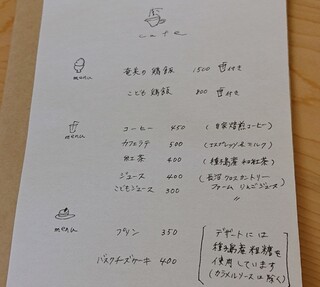 cafe
menu
奄美の鶏飯 1500 🍧付き
こども鶏飯 800 🍧付き
menu
コーヒー 450 (自家焙煎コーヒー)
カフェラテ 500 (エスプレッソ&ミルク)
和紅茶 400 (種子島産和紅茶)
ジュース 400 (長沼クロスカントリーファーム りんごジュース)
こどもジュース 300 〃
menu
プリン 350
バスクチーズケーキ 400
デザートには
種子島産粗糖を
使用しています
(カラメルソースは除く)